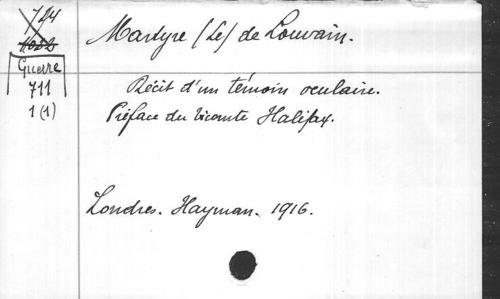 724
Guerre
711
1(1)
Martyre (Le) de Louvain.
Récit d'un témoin oculaire.
Préface du Vicomte Halifax.
Londres. Hayman. 1916.